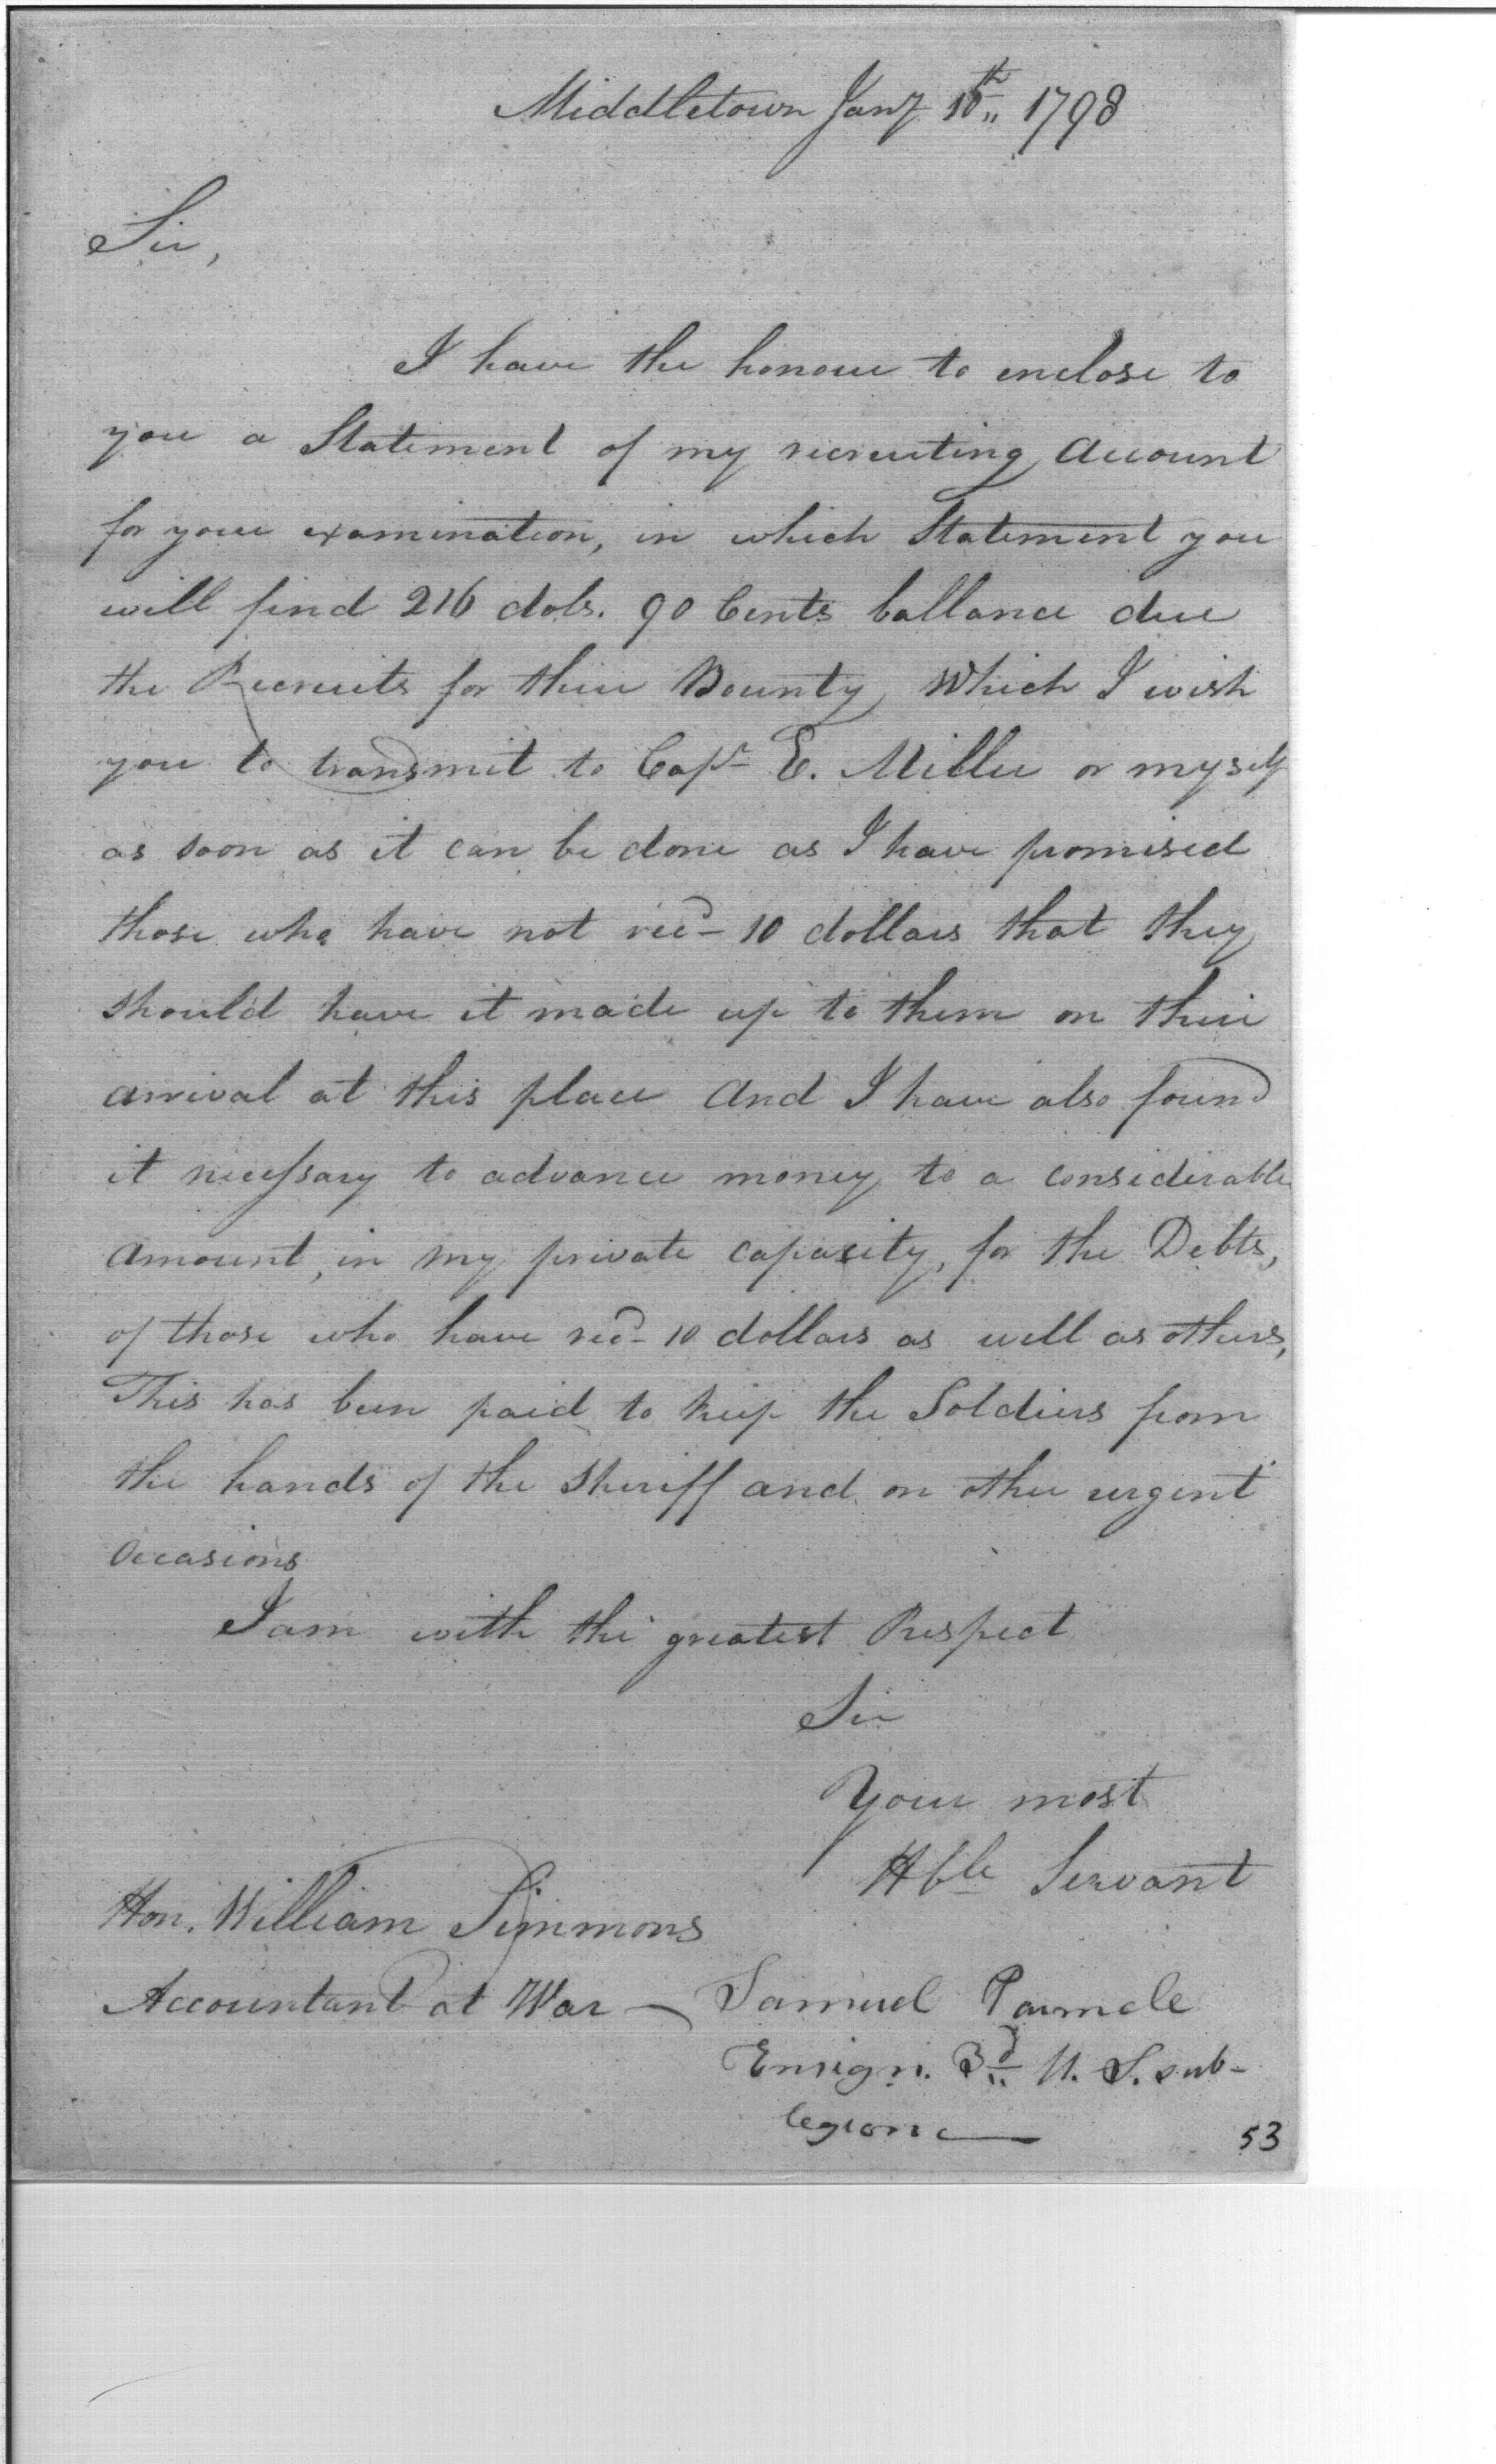 Middletown Jany 10th 1798
Sir,
I have the honour to enclose to
you a Statement of my recruiting Account
for your examination, in which Statement you
will find 216 dols. 90 Cents ballance due
the Recruits for their Bounty, Which I wish
you to transmit to Capt E. Miller or myself
as soon as it can be done as I have promised
those who have not recd 10 dollars that they
should have it made up to them on their
arrival at this place And I have also found
it necessary to advance money to a considerable
Amount, in my private capasity, for the Debts,
of those who have recd 10 dollars as well as others,
This has been paid to keep the Soldiers from
the hands of the Sheriff and on other urgent
Occasions
I am with the greatest Respect
Sir
Your most
Hble Servant
Hon. William Simmons
Accountant at War — Samuel Parmele
Ensign. 3d U. S. sub-
legion —
53